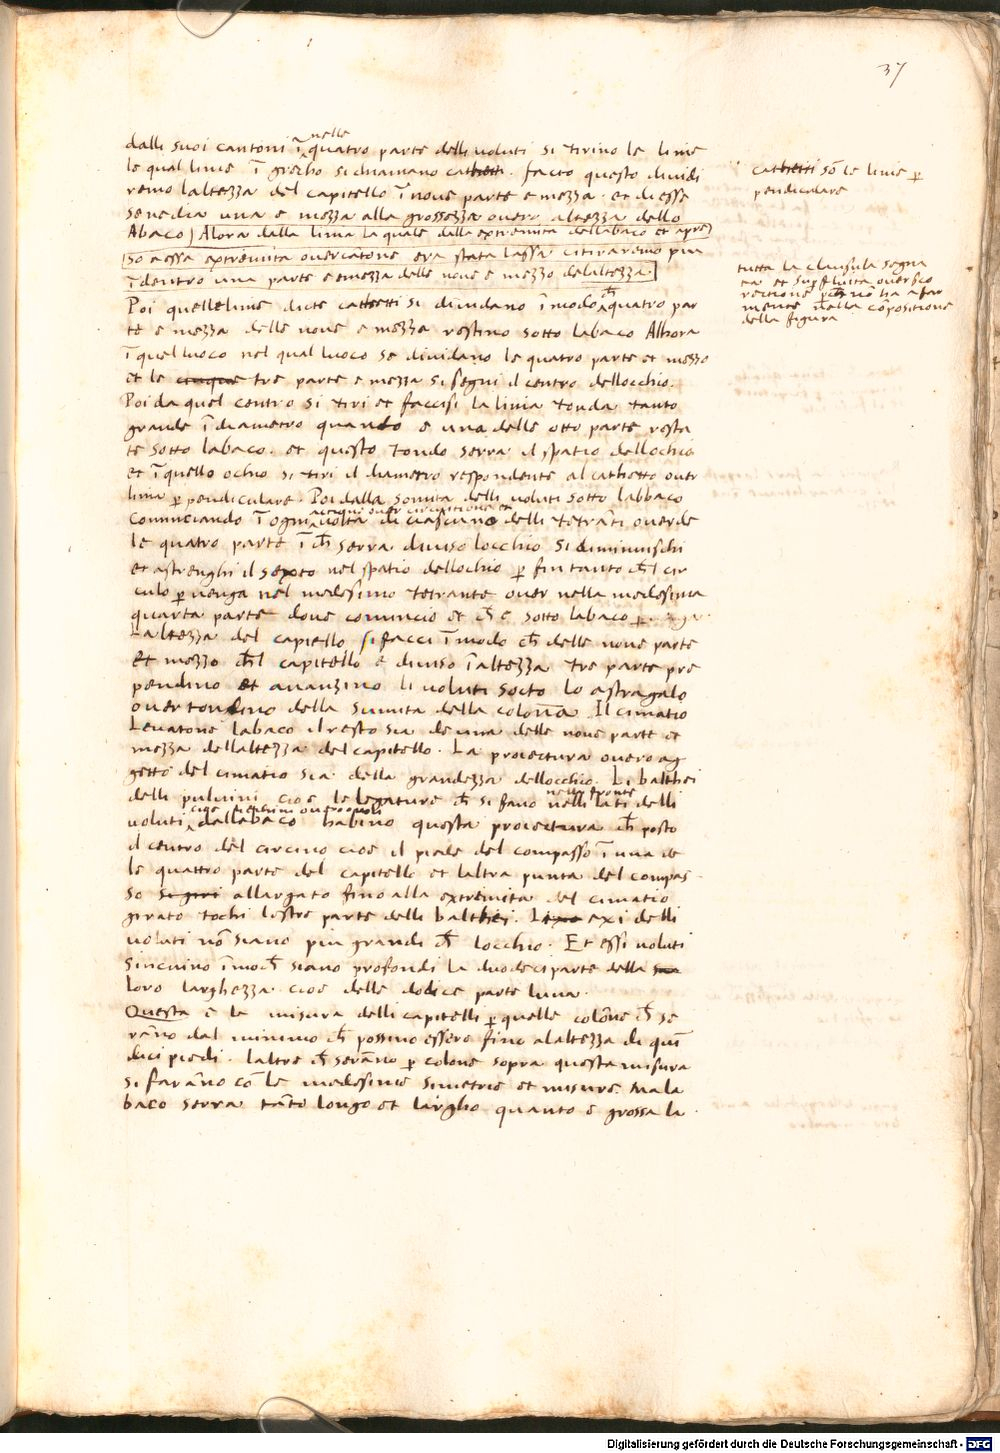 37
dalli suoi cantoni ĩ nelle quatro parte delli voluti si tirino le linie
le qual linie ĩ grecho si chiamano cathetti. facto questo dividi
remo laltezza del capitello ĩ nove parte e mezza. et di esse
se ne dia una e mezza alla grossezza overo altezza dello
Abaco) Alora dalla linia la quale dalla extremita dellabaco et apres
so a essa extremita overcãtone era stata lassa citiraremo piu
ĩ dentro una parte e mezza delle nove e mezzo delaltezza.
Poi quelle linie dicte cathetti si dividano ĩ modo ch̃ quatro par
te e mezza delle nove e mezza restino sotto labaco Alhora
ĩ quel luoco nel qual luoco se dividano le quatro parte et mezzo
et le cinque tre parte e mezza si segni il centro dellocchio.
Poi da quel centro si tiri et faccisi la linia tonda tanto
grande ĩ diametro quando e una delle otto parte resta
te sotto labaco. et questo tondo serra il spatio dellochio
et ĩ quello ochio si tiri il diametro respondente al cathetto over
linia ꝑpendiculare. Poi dalla somita delli voluti sotto labbaco
cominciando ĩ ogni volta di ciascuno delli tetrãti overde
le quatro parte ĩ ch̃ serra diviso locchio si diminuischi
et astrenghi il sexto nel spatio dellochio ꝑ fin tanto ch̃l cir
culo ꝑvenga nel medesimo tetrante over nella medesima
quarta parte dove comincio et ch̃ e sotto labaco
Laltezza del capiello si facci ĩ modo ch̃ delle nove parte
et mezzo ch̃l capitello e diviso ĩ altezza tre parte pre
pendino et avanzino li voluti socto lo astragalo
over tondino della sumita della colõna Il cimatio
Levatone labaco il resto sia de una delle nove parte et
mezza dellaltezza del capitello. La proiectura overo ag
getto del cimatio sia della grandezza dellocchio. Li balthei
delli pulvini cioe le legature ch̃ si fano nella fronte nelli lati delli
voluti dellabaco habino questa proiectura ch̃ posto
il centro del circino cioe il piede del compasso ĩ una de
le quattro parte del capitello et laltra punta del compas
so si giri allargato fino alla extremita del cimatio
girato tochi lestre parte delli balthei. exi delli
voluti nõ siano piu grandi ch̃ locchio. Et essi voluti
sincuino ĩ moch̃ siano profondi la duodeci parte della
loro larghezza. cioe delle dodece parte luna.
Questa e la misura delli capitelli ꝑ quelle colõne ch̃ se
rãno dal minimo ch̃ possino essere fino alaltezza di quĩ
dici piedi. laltre ch̃ serãno ꝑ colone sopra questa misura
si farãno cõ le medesime simetrie et misure. Ma la
baco serra tãto longo et largho quanto e grossa la
cathetti sõ le linie ꝑ
pendiculare
tutta la clausula segna
ta et superfluita over sco
rectione ꝑch̃ nõ ha a far
mente nella cõpositione
della figura
Digitalisierung gefördert durch die Deutsche Forschungsgemeinschaft - DFG